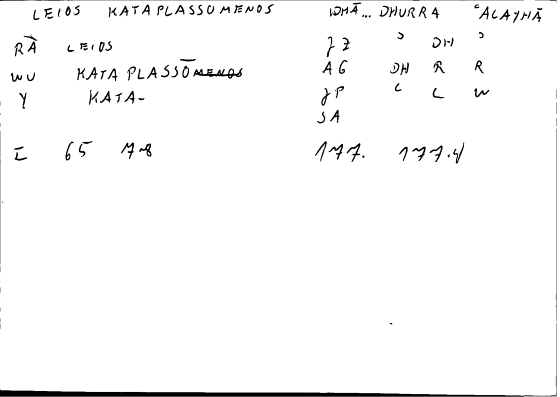 LEIOS KATAPLASSOMENOS IDHĀ... DHURRA ʿALAYHĀ
RĀ LEIOS JZ ʾ DH ʾ
WU KATAPLASSO̅MENOS AG DH R R
Y KATA- JP ʿ L W
SA
I 65 7-8 177. 177.4